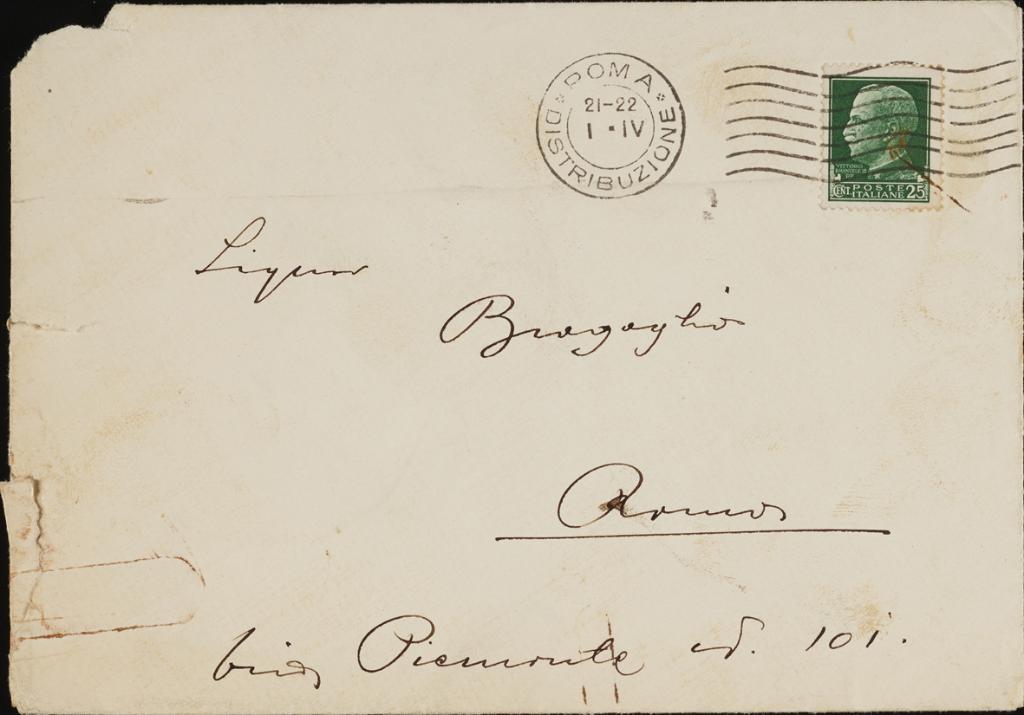 ROMA
21-22
1 · IV
DISTRIBUZIONE
VITTORIO
EMANUELE III
CENT. POSTE
ITALIANE 25
Bragaglia
Roma
Via Piemonte 101.